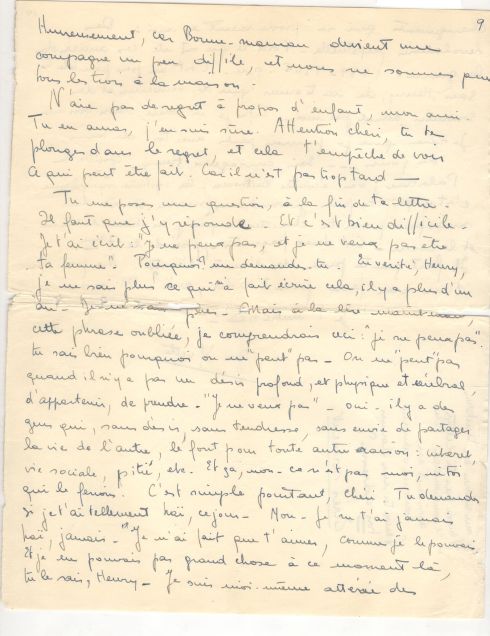 9
Heureusement, car Bonne-maman devient une
compagne un peu difficile, et nous ne sommes que
tous les trois à la maison.
N'aie pas de regret à propos d'enfant, mon ami.
Tu en auras, j'en suis sûre. Attention chéri, tu te
plonges dans le regret, et cela t'empêche de voir
ce qui peut être fait. Car il n'est pas trop tard —
Tu me poses une question, à la fin de ta lettre.
Il faut que j'y réponde. Et c'est bien difficile.
Je t'ai écrit: "Je ne peux pas, et je ne veux pas être
ta femme". Pourquoi? me demandes-tu. En vérité, Henry,
je ne sais plus ce qui m'a fait écrire cela, il y a plus d'un
an. Je ne sais plus. Mais à la lire maintenant,
cette phrase oubliée, je comprendrais ceci: "je ne peux pas".
tu sais bien pourquoi on ne "peut" pas — On ne "peut" pas
quand il n'y a pas un désir profond, et physique et cérébral,
d'appartenir, de prendre. "Je ne veux pas" — oui. il y a des
gens qui, sans désir, sans tendresse, sans envie de partager
la vie de l'autre, le font pour toute autre raison: intérêt,
vie sociale, pitié, etc. Et ça, non — ce n'est pas moi, ni toi
qui le ferions. C'est simple pourtant, chéri. Tu demandes
si je t'ai tellement haï, ce jour. Non. Je ne t'ai jamais
haï, jamais. Je n'ai fait que t'aimer, comme je le pouvais.
Et je ne pouvais pas grand chose à ce moment là,
tu le sais, Henry — Je suis moi-même attérée des